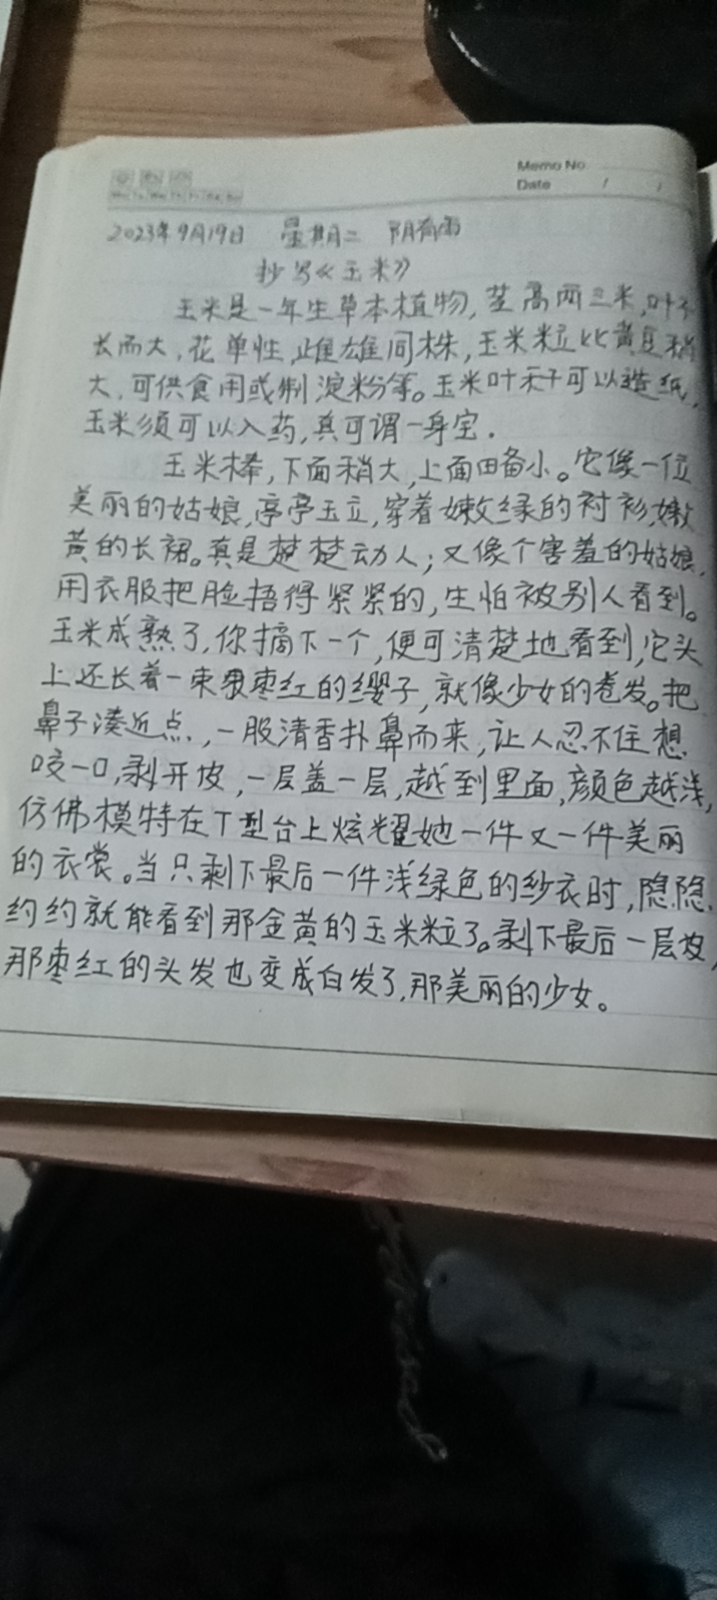 Memo No
Date / /
2023年9月19日 星期二 阴有雨
抄写《玉米》
玉米是一年生草本植物,茎高两三米,叶子
长而大,花单性,雌雄同株,玉米粒比黄豆稍
大,可供食用或制淀粉等。玉米叶子可以造纸,
玉米须可以入药,真可谓一身宝.
玉米棒,下面稍大,上面略小。它像一位
美丽的姑娘,亭亭玉立,穿着嫩绿的衬衫,嫩
黄的长裙。真是楚楚动人;又像个害羞的姑娘,
用衣服把脸捂得紧紧的,生怕被别人看到。
玉米成熟了,你摘下一个,便可清楚地看到,它头
上还长着一束枣红的缨子,就像少女的卷发。把
鼻子凑近点,一股清香扑鼻而来,让人忍不住想
咬一口,剥开皮,一层盖一层,越到里面,颜色越浅,
仿佛模特在T型台上炫耀她一件又一件美丽
的衣裳。当只剩下最后一件浅绿色的纱衣时,隐隐
约约就能看到那金黄的玉米粒了。剥下最后一层皮,
那枣红的头发也变成白发了,那美丽的少女。